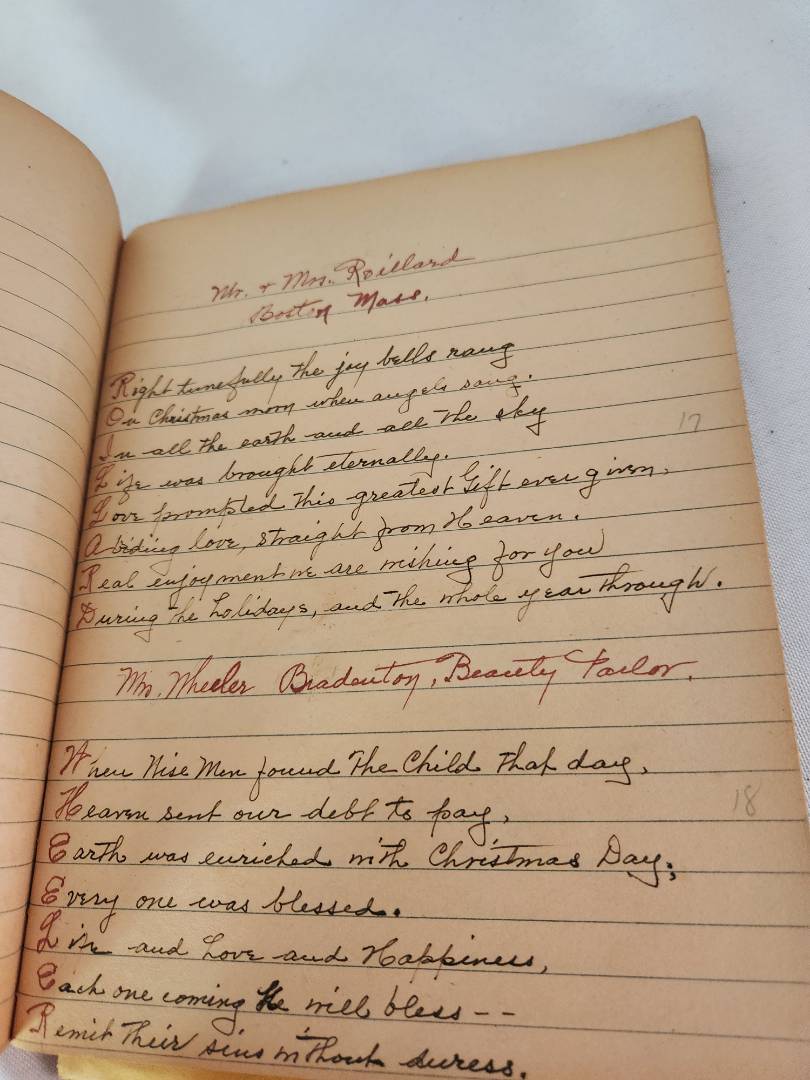 Mr. & Mrs. Roillard
Boston Mass.
Right tunefully the joy bells rang
On Christmas morn when angels sang.
In all the earth and all the sky
17
Life was brought eternally.
Love prompted this greatest Gift ever given,
Abiding love, straight from Heaven.
Real enjoyment we are wishing for you
During the holidays, and the whole year through.
Mrs. Wheeler Bradenton, Beauty Parlor.
When Wise Men found The Child that day,
18
Heaven sent our debt to pay,
Earth was enriched with Christmas Day;
Every one was blessed.
Life and Love and Happiness,
Each one coming He will bless--
Remit their sins without duress.